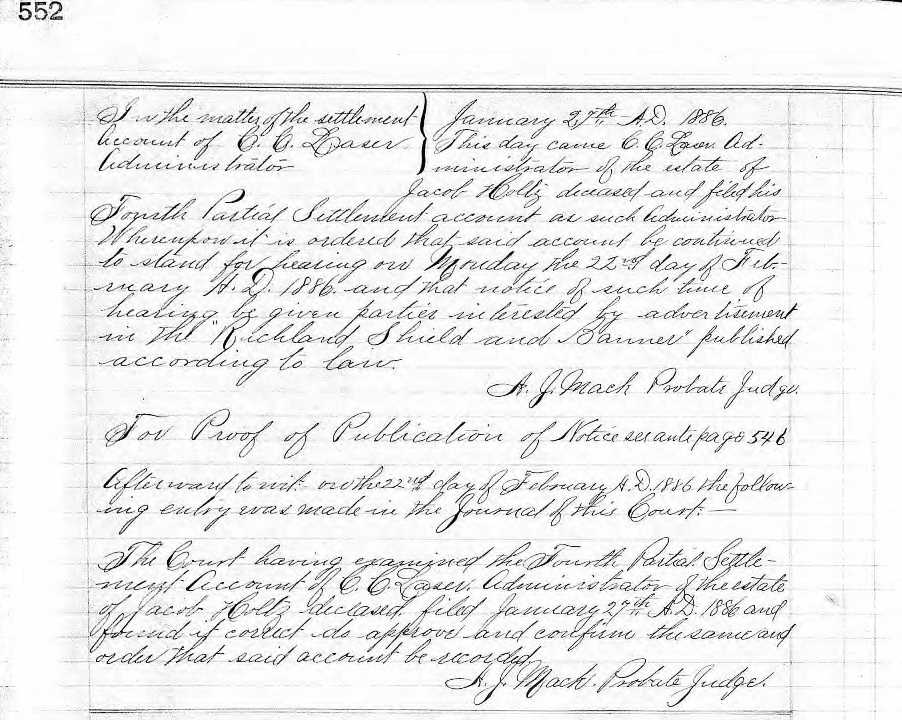 552
In the matter of the settlement
Account of C. C. Laser
Administrator
January 27th A.D. 1886.
This day came C. C. Laser Ad-
ministrator of the estate of
Jacob Holtz deceased and filed his
Fourth Partial Settlement account as such Administrator
Whereupon it is ordered that said account be continued
to stand for hearing on Monday the 22nd day of Feb-
ruary A.D. 1886. and that notice of such time of
hearing be given parties interested by advertisement
in the "Richland Shield and Banner" published
according to law.
A. J. Mack Probate Judge.
For Proof of Publication of Notice see ante page 546
Afterward to wit: on the 22nd day of February A.D. 1886 the follow-
ing entry was made in the Journal of this Court: —
The Court having examined the Fourth Partial Settle-
ment Account of C. C. Laser. Administrator of the estate
of Jacob Holtz deceased, filed January 27th A.D. 1886 and
found it correct do approve and confirm the same and
order that said account be recorded.
A. J. Mack. Probate Judge.